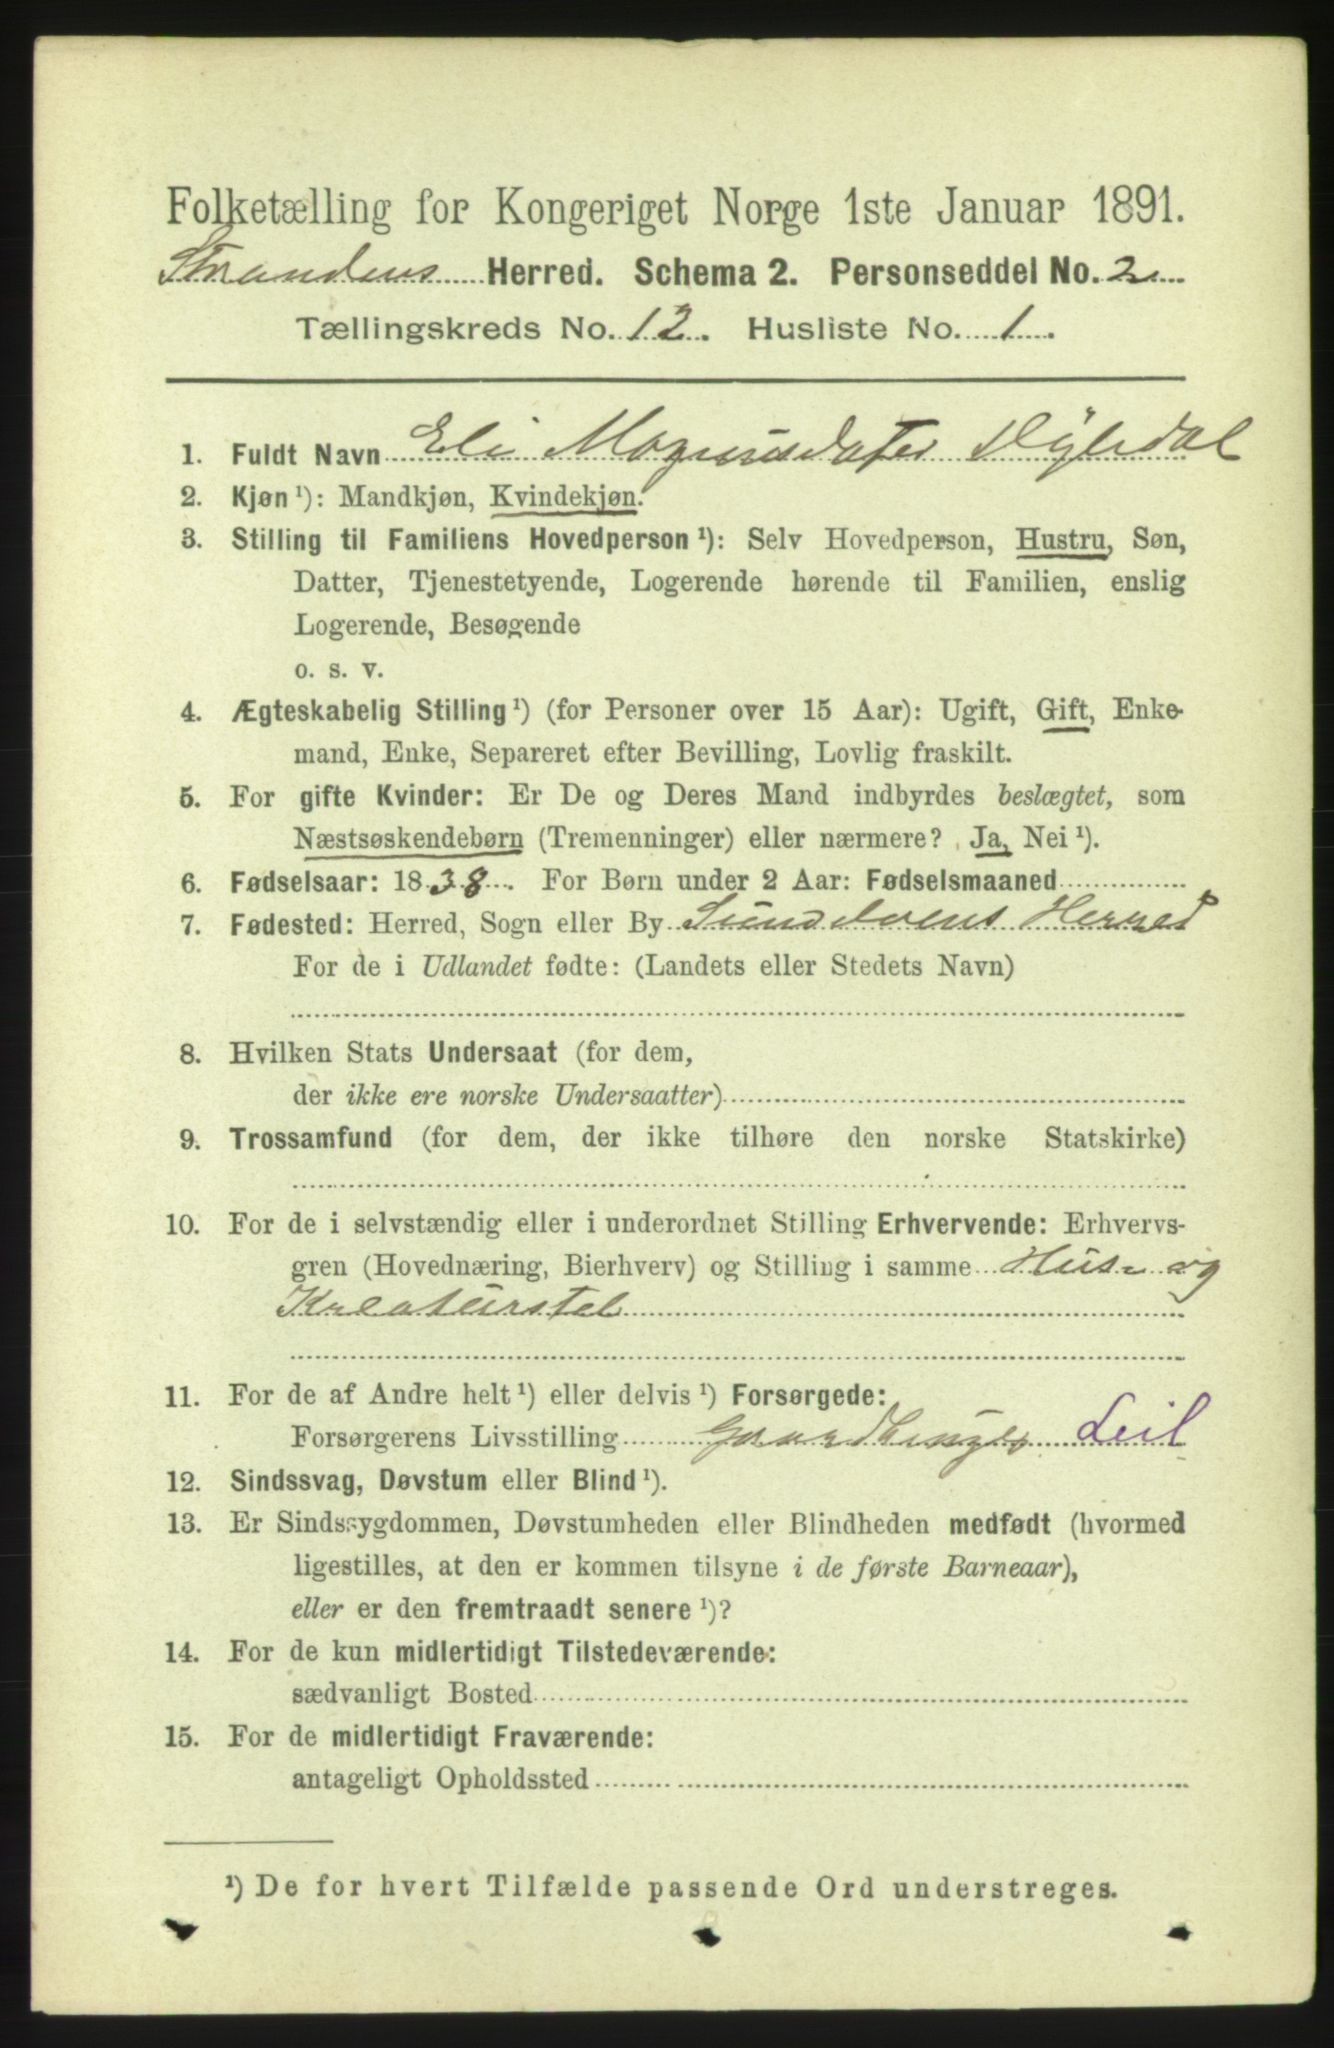 Folketælling for Kongeriget Norge 1ste Januar 1891.
Strandens Herred. Schema 2. Personseddel No. 2
Tællingskreds No. 12. Husliste No. 1.
1. Fuldt Navn Eli Magnusdater
2. Kjøn ¹): Mandkjøn, Kvindekjøn.
3. Stilling til Familiens Hovedperson ¹): Selv Hovedperson, Hustru, Søn,
Datter, Tjenestetyende, Logerende hørende til Familien, enslig
Logerende, Besøgende
o. s. v.
4. Ægteskabelig Stilling ¹) (for Personer over 15 Aar): Ugift, Gift, Enke-
mand, Enke, Separeret efter Bevilling, Lovlig fraskilt.
5. For gifte Kvinder: Er De og Deres Mand indbyrdes beslægtet, som
Næstsøskendebørn (Tremenninger) eller nærmere? Ja, Nei ¹).
6. Fødselsaar: 1838. For Børn under 2 Aar: Fødselsmaaned
7. Fødested: Herred, Sogn eller By Sundelvens Herred
For de i Udlandet fødte: (Landets eller Stedets Navn)
8. Hvilken Stats Undersaat (for dem,
der ikke ere norske Undersaatter)
9. Trossamfund (for dem, der ikke tilhøre den norske Statskirke)
10. For de i selvstændig eller i underordnet Stilling Erhvervende: Erhvervs-
gren (Hovednæring, Bierhverv) og Stilling i samme Hus- og
Kreaturstel
11. For de af Andre helt ¹) eller delvis ¹) Forsørgede:
Forsørgerens Livsstilling Gaardbruger Leil
12. Sindssvag, Døvstum eller Blind ¹).
13. Er Sindssygdommen, Døvstumheden eller Blindheden medfødt (hvormed
ligestilles, at den er kommen tilsyne i de første Barneaar),
eller er den fremtraadt senere ¹)?
14. For de kun midlertidigt Tilstedeværende:
sædvanligt Bosted
15. For de midlertidigt Fraværende:
antageligt Opholdssted
¹) De for hvert Tilfælde passende Ord understreges.